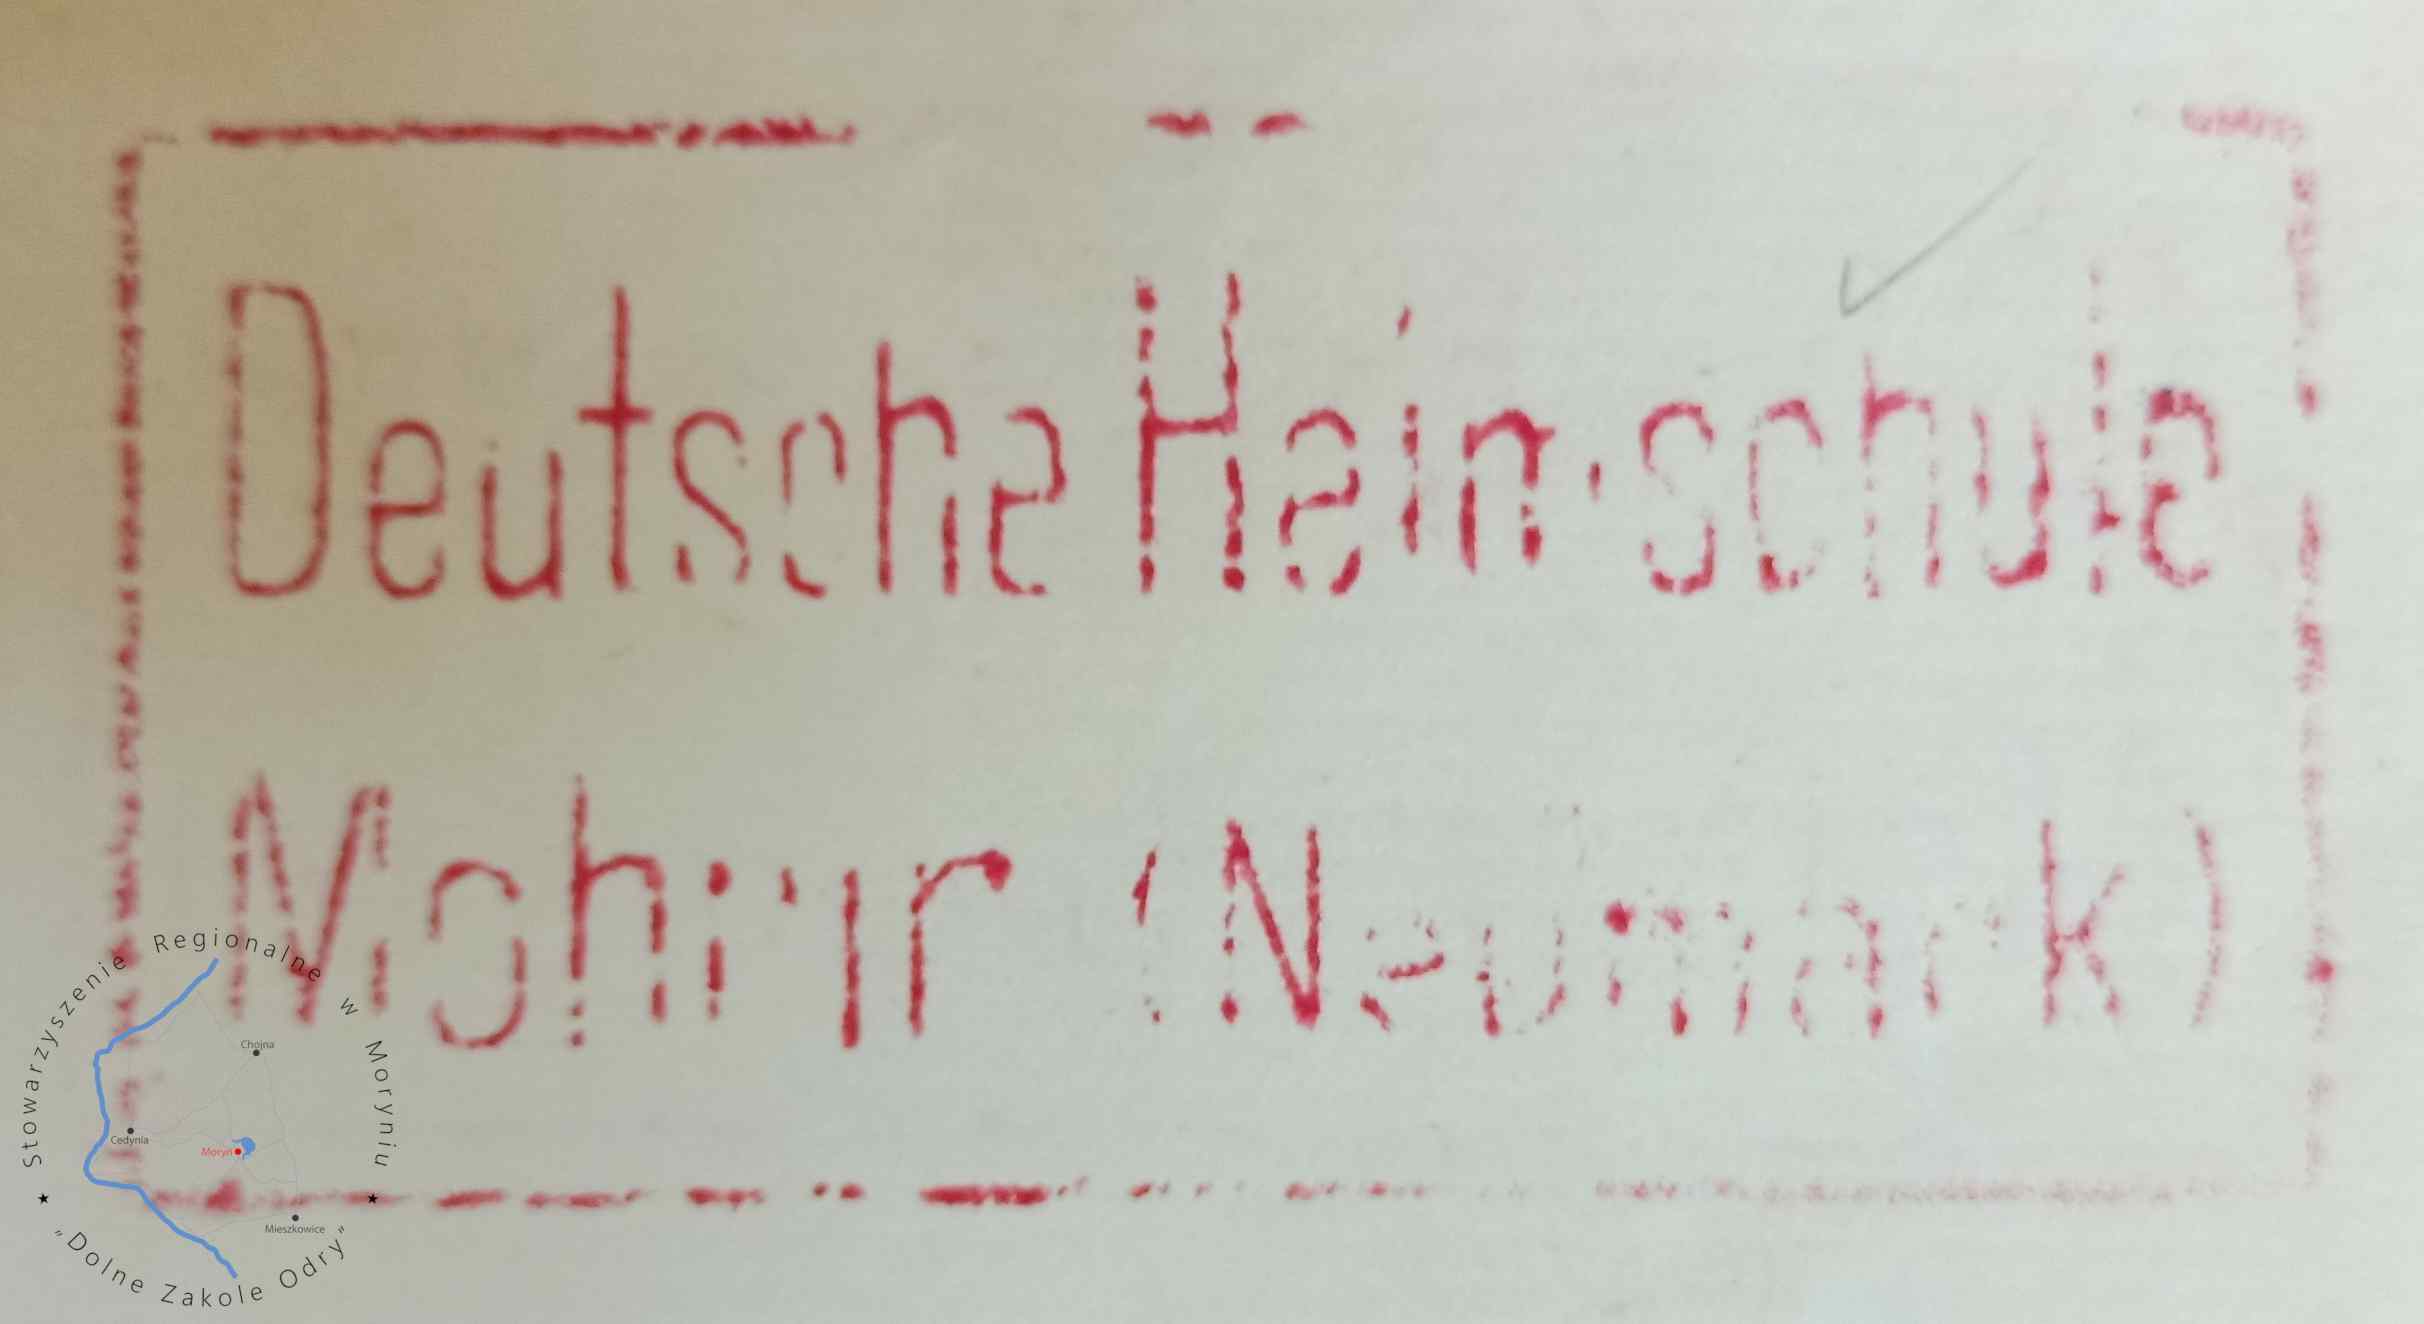 Deutsche Heimschule
Mohrin (Neumark)
Stowarzyszenie Regionalne w Moryniu
Chojna
Cedynia
Moryń
Mieszkowice
„Dolne Zakole Odry”